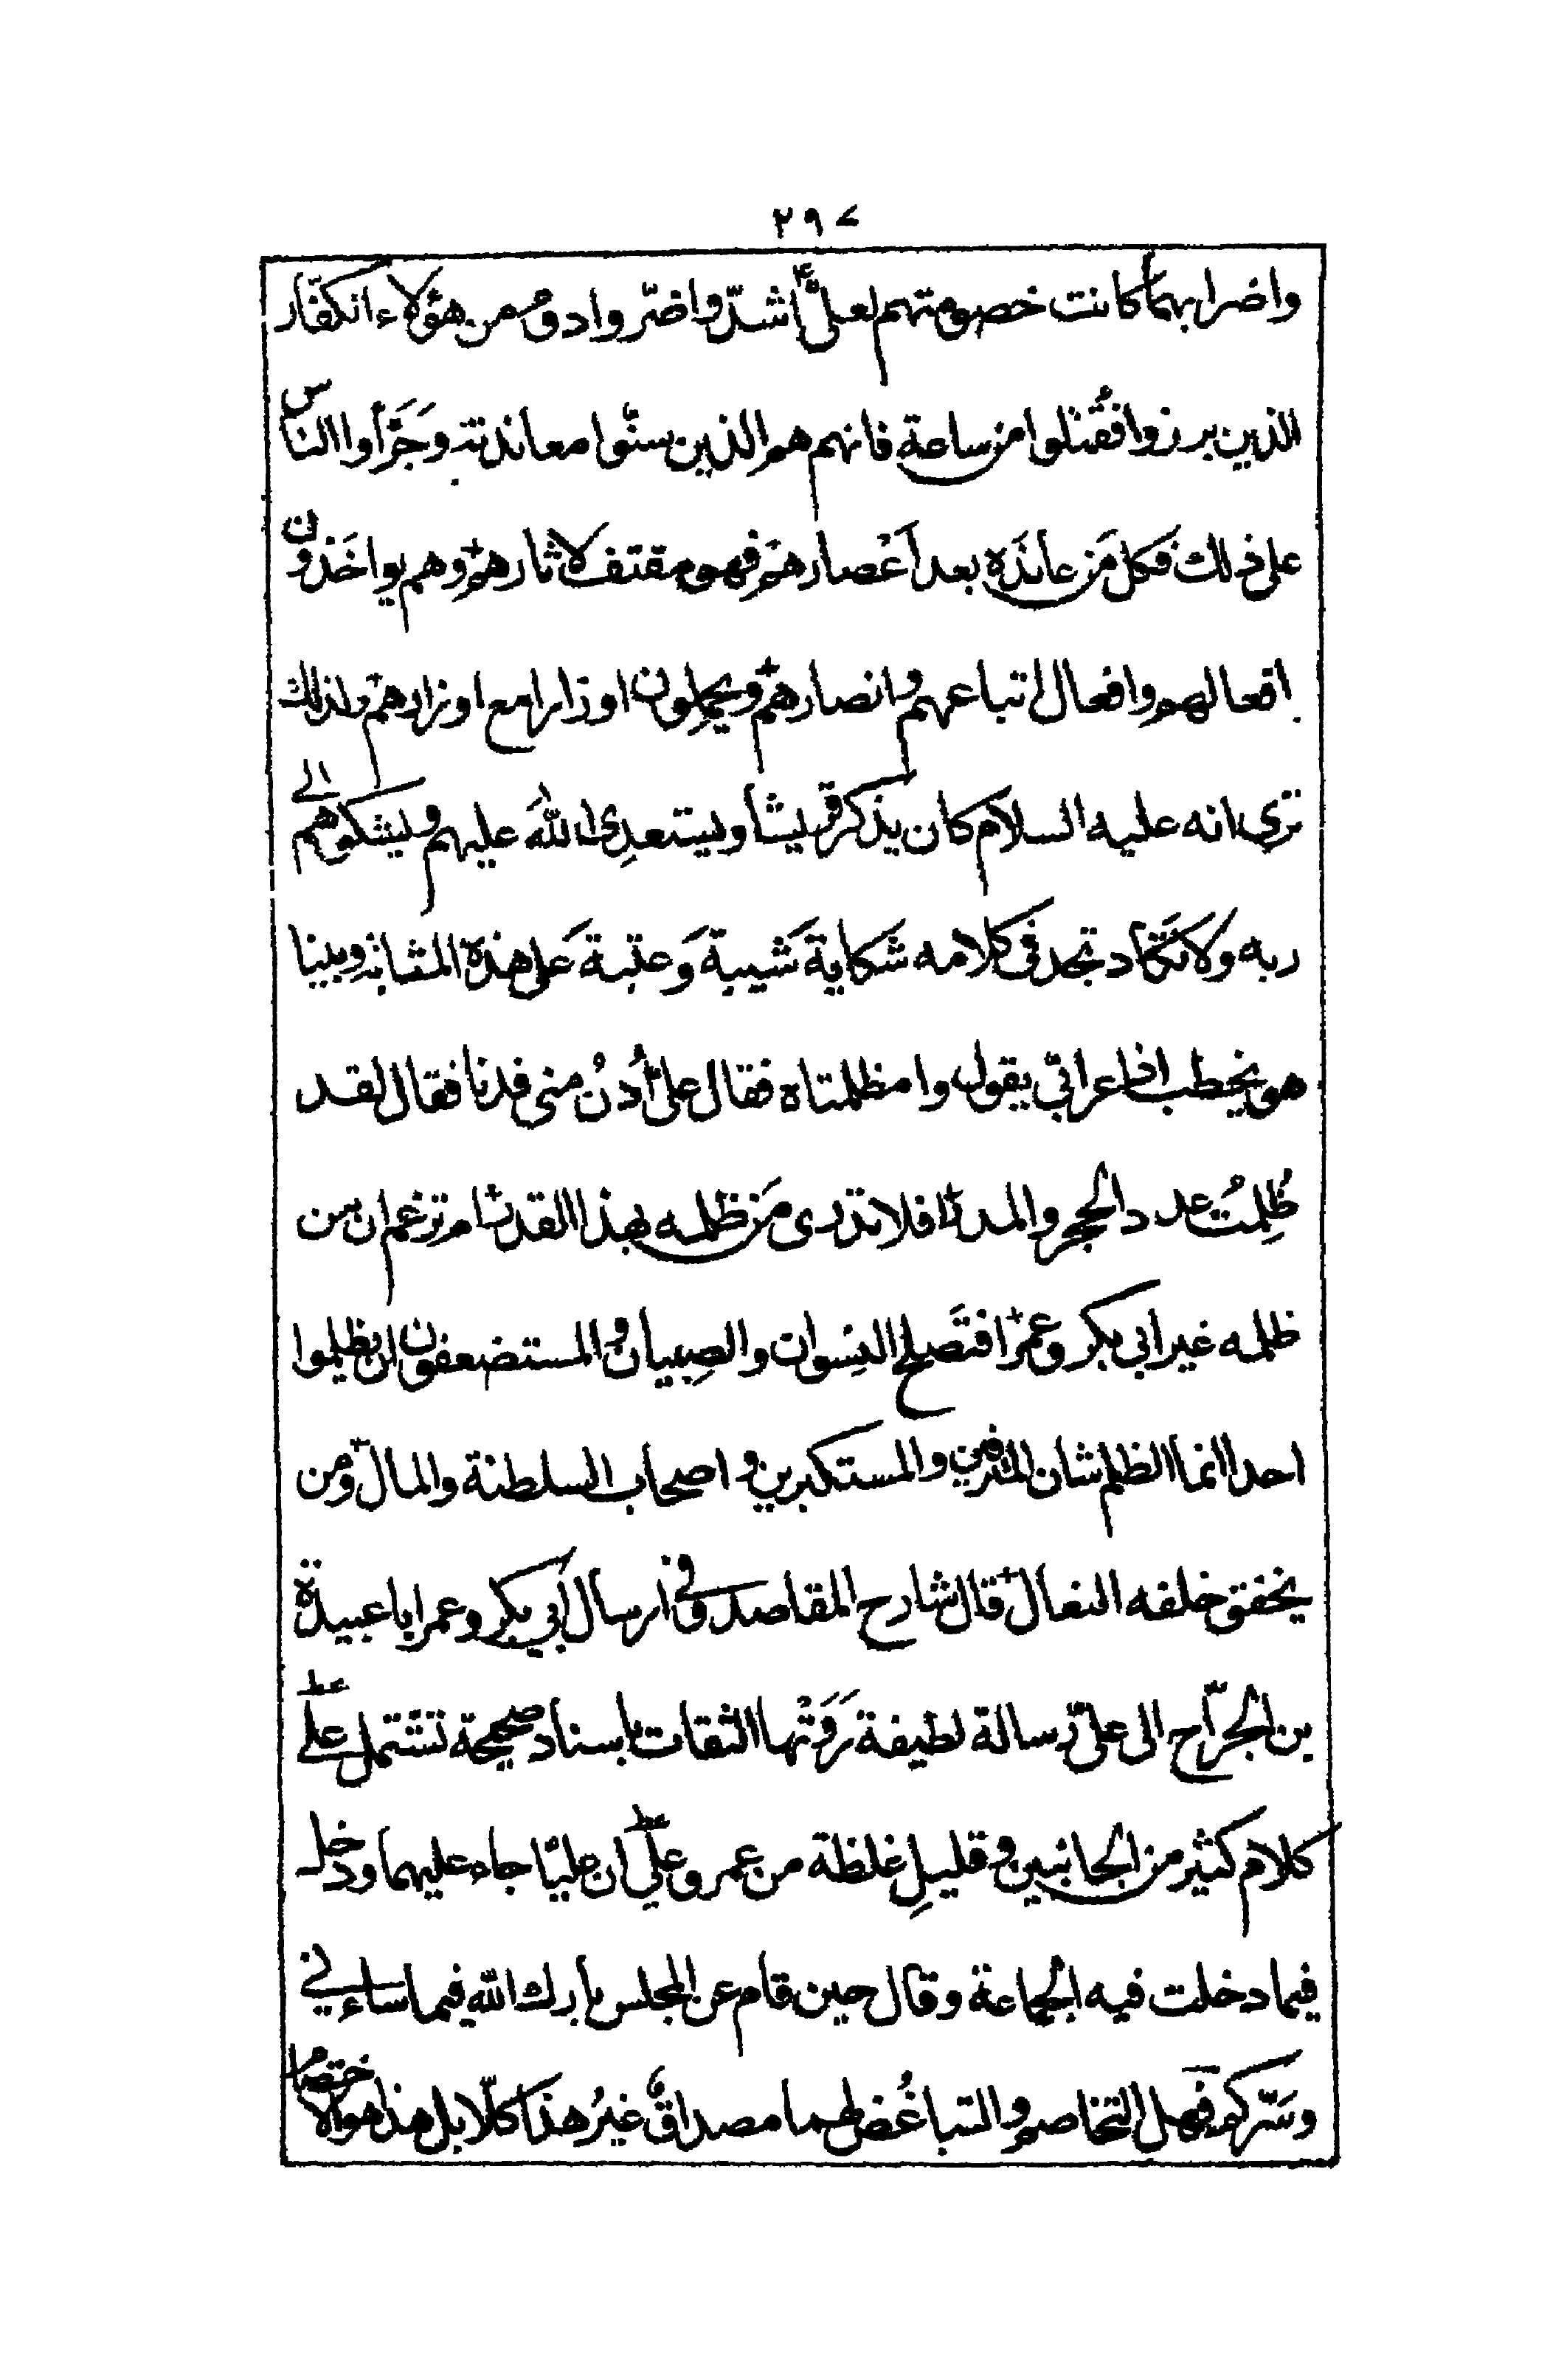 ۲۹۷
واضرابهما كانت خصومتهم لعلیؑ اشدّ واضرّ وادوم من هؤلاء الكفّار
الذين برزوا فقُتلوا من ساعة فانهم هم الذين سنّوا معاندته وجَرَّأوا الناس
على ذلك فكل مَن عانَدَه بعد اَعْصارهم فهو مقتف لاثارهم وهم يواخَذون
بافعالهم وافعال اتباعهم وانصارهم ويحملون اوزارا مع اوزارهم ولذلك
ترى انه عليه السلام كان يذكر قريشاً ويستعدِى اللهَ عليهم ويشكوهم الى
ربه ولا تَكاد تجد فى كلامه شَكاية شَيبة وَعتبة عَلى هذه المثابة وبينا
هو يخطب اذ اعرابیّ يقول وا مظلمتاه فقال علیؑ اُدنُ منى فدنا فقال لقد
ظُلِمتُ عدد الحجر والمدر افلا تدرى مَن ظلمه بهذا القدر ام تزعم ان من
ظلمه غير ابى بكر وعمر افتَصلح النِسوان والصِبيان والمستضعفون ان يظلموا
احدا انما الظلم شان المترفين والمستكبرين واصحاب السلطنة والمال ومن
يخفق خلفه النعال قال شارح المقاصد وفى ارسال أبي بكر وعمر ابا عبيدة
بن الجرّاح الى علىّ رسالة لطيفة رَوَتْها الثقات بأسناد صحيحة تشتمل على
كلام كثير من الجانبين وقليلِ غلظة من عمر وعلىّ ان عليّا جاء عليهما ودخل
فيما دخلت فيه الجماعة وقال حين قام عن المجلس بارك الله فيما ساءني
وسَرّكم فهل التخاصم والتباغُض لهما مصداقٌ غيرُ هذا كلّا بل هذا هو الاختصام